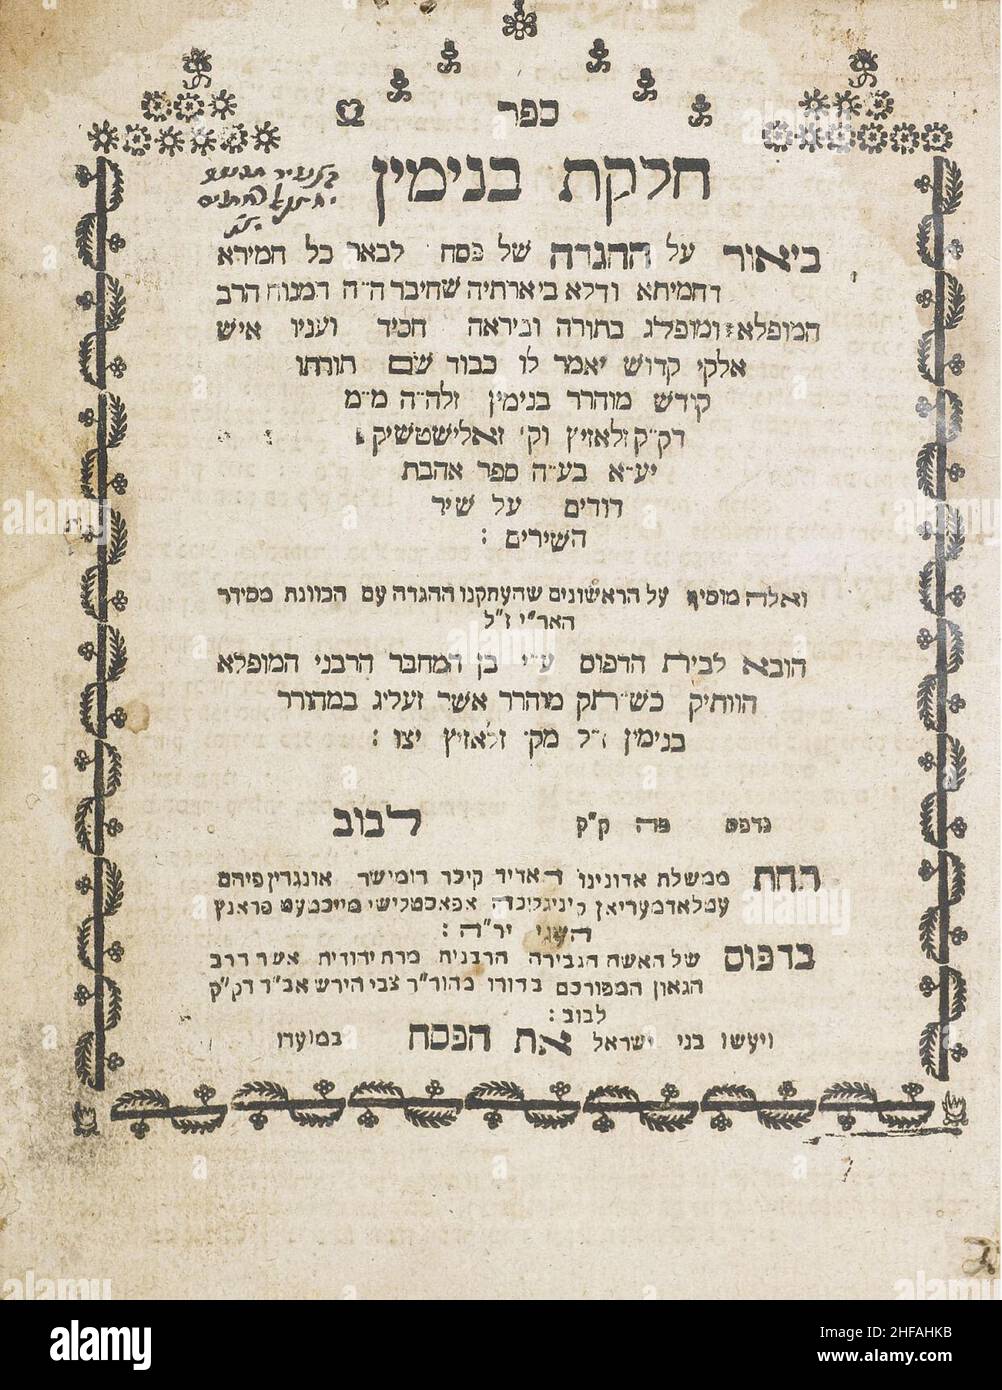 ספר
חלקת בנימין
ביאור על ההגדה של פסח לבאר כל המירא
דחמיתא ודלא ביארתיה שחיבר ה״ה המנוח הרב
המופלא ומופלג בתורה וביראה חסיד ועניו איש
אלקי קדוש יאמר לו כבוד שם תורתו
קודש מוהרר בנימין זלה״ה מ״מ
דק״ק זלאזיץ וק׳ זאלישטשיק
יע״א בע״ה ספר אהבת
דודים על שיר
השירים :
ואלה מוסיף על הראשונים שהעתקנו ההגדה עם הכוונת מסידר
האר״י ז״ל
הובא לבית הדפוס ע״י בן המחבר הרבני המופלא
הוותיק כש״ת מוהרר אשר זעליג במהורר
בנימין ז״ל מק״ זלאזיץ יצו :
נדפס פה ק״ק לבוב
תחת ממשלת אדונינו האדיר קיסר רומישר אונגרין פיהם
גאליציען לאדאמעריען
השני יר״ה :
בדפוס של האשה הגבירה הרבנית מרת יהודית אשר הרב
הגאון המפורסם בדורו מהור״ר צבי הירש אב״ד דק״ק
לבוב :
ויעשו בני ישראל את הפסח במועדו
alamy
Image ID: 2HFAHKB
www.alamy.com